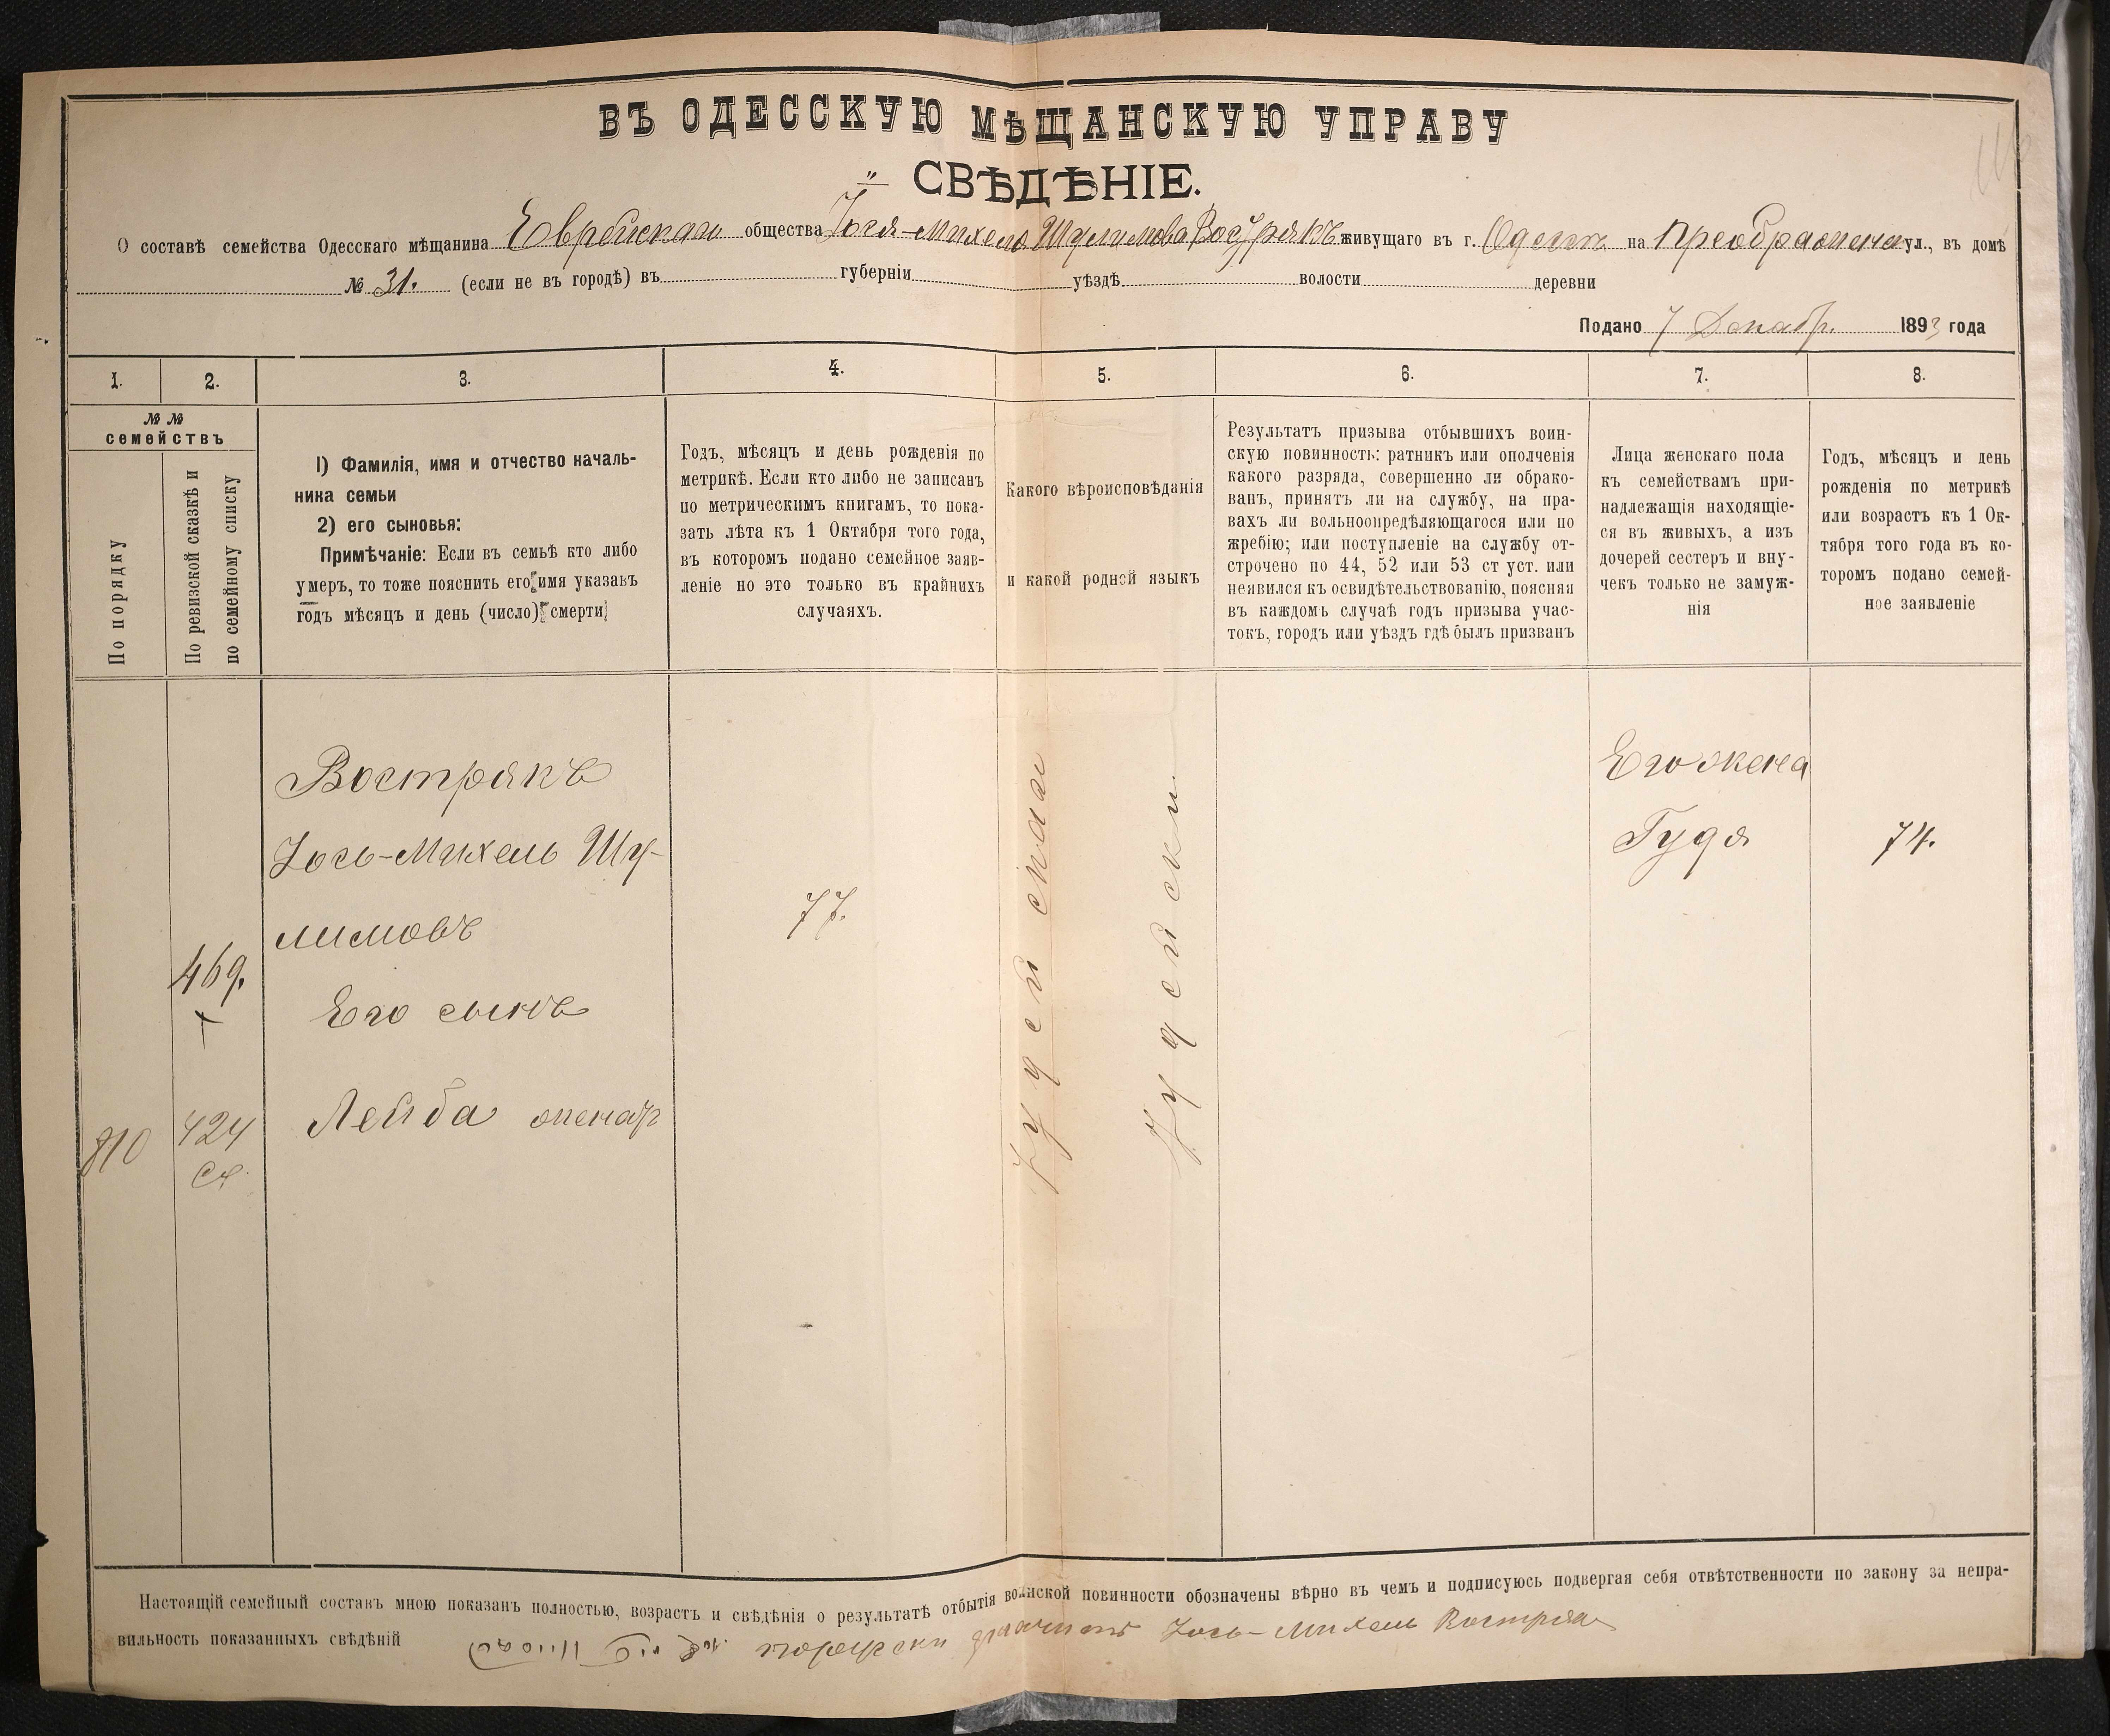 ВЪ ОДЕССКУЮ МѢЩАНСКУЮ УПРАВУ
СВѢДѢНІЕ.
О составѣ семейства Одесскаго мѣщанина Еврейскаго общества Іося-Михеля Шулимова Вострякъ живущаго въ г. Одессѣ на Преображенск ул., въ домѣ
№ 31. (если не въ городѣ) въ губерніи уѣздѣ волости деревни
Подано 7 Декабр. 1893 года
1. 2. 3. 4. 5. 6. 7. 8.
№ №
семействъ
По порядку
По ревизской сказкѣ и
по семейному списку
1) Фамилія, имя и отчество началь-
ника семьи
2) его сыновья:
Примѣчаніе: Если въ семьѣ кто либо
умеръ, то тоже пояснить его имя указавъ
годъ мѣсяцъ и день (число) смерти
Годъ, мѣсяцъ и день рожденія по
метрикѣ. Если кто либо не записанъ
по метрическимъ книгамъ, то пока-
зать лѣта къ 1 Октября того года,
въ которомъ подано семейное заяв-
леніе но это только въ крайнихъ
случаяхъ.
Какого вѣроисповѣданія
и какой родной языкъ
Результатъ призыва отбывшихъ воин-
скую повинность: ратникъ или ополченія
какого разряда, совершенно ли обрако-
ванъ, принятъ ли на службу, на пра-
вахъ ли вольноопредѣляющагося или по
жребію; или поступленіе на службу от-
строчено по 44, 52 или 53 ст уст. или
неявился къ освидѣтельствованію, поясняя
въ каждомъ случаѣ годъ призыва учас-
токъ, городъ или уѣздъ гдѣ былъ призванъ
Лица женскаго пола
къ семействамъ при-
надлежащія находящіе-
ся въ живыхъ, а изъ
дочерей сестеръ и вну-
чекъ только не замуж-
нія
Годъ, мѣсяцъ и день
рожденія по метрикѣ
или возрастъ къ 1 Ок-
тября того года въ ко-
торомъ подано семей-
ное заявленіе
Вострякъ
Іось-Михель Шу-
лимовъ
469.
77.
Іудейская
Іудейски
Его жена
Гудя
74.
Его сынъ
810
424
Лейба
Настоящій семейный составъ мною показанъ полностью, возрастъ и свѣдѣнія о результатѣ отбытія воинской повинности обозначены вѣрно въ чемъ и подписуюсь подвергая себя отвѣтственности по закону за непра-
вильность показанныхъ свѣдѣній
Іось-Михель Вострякъ